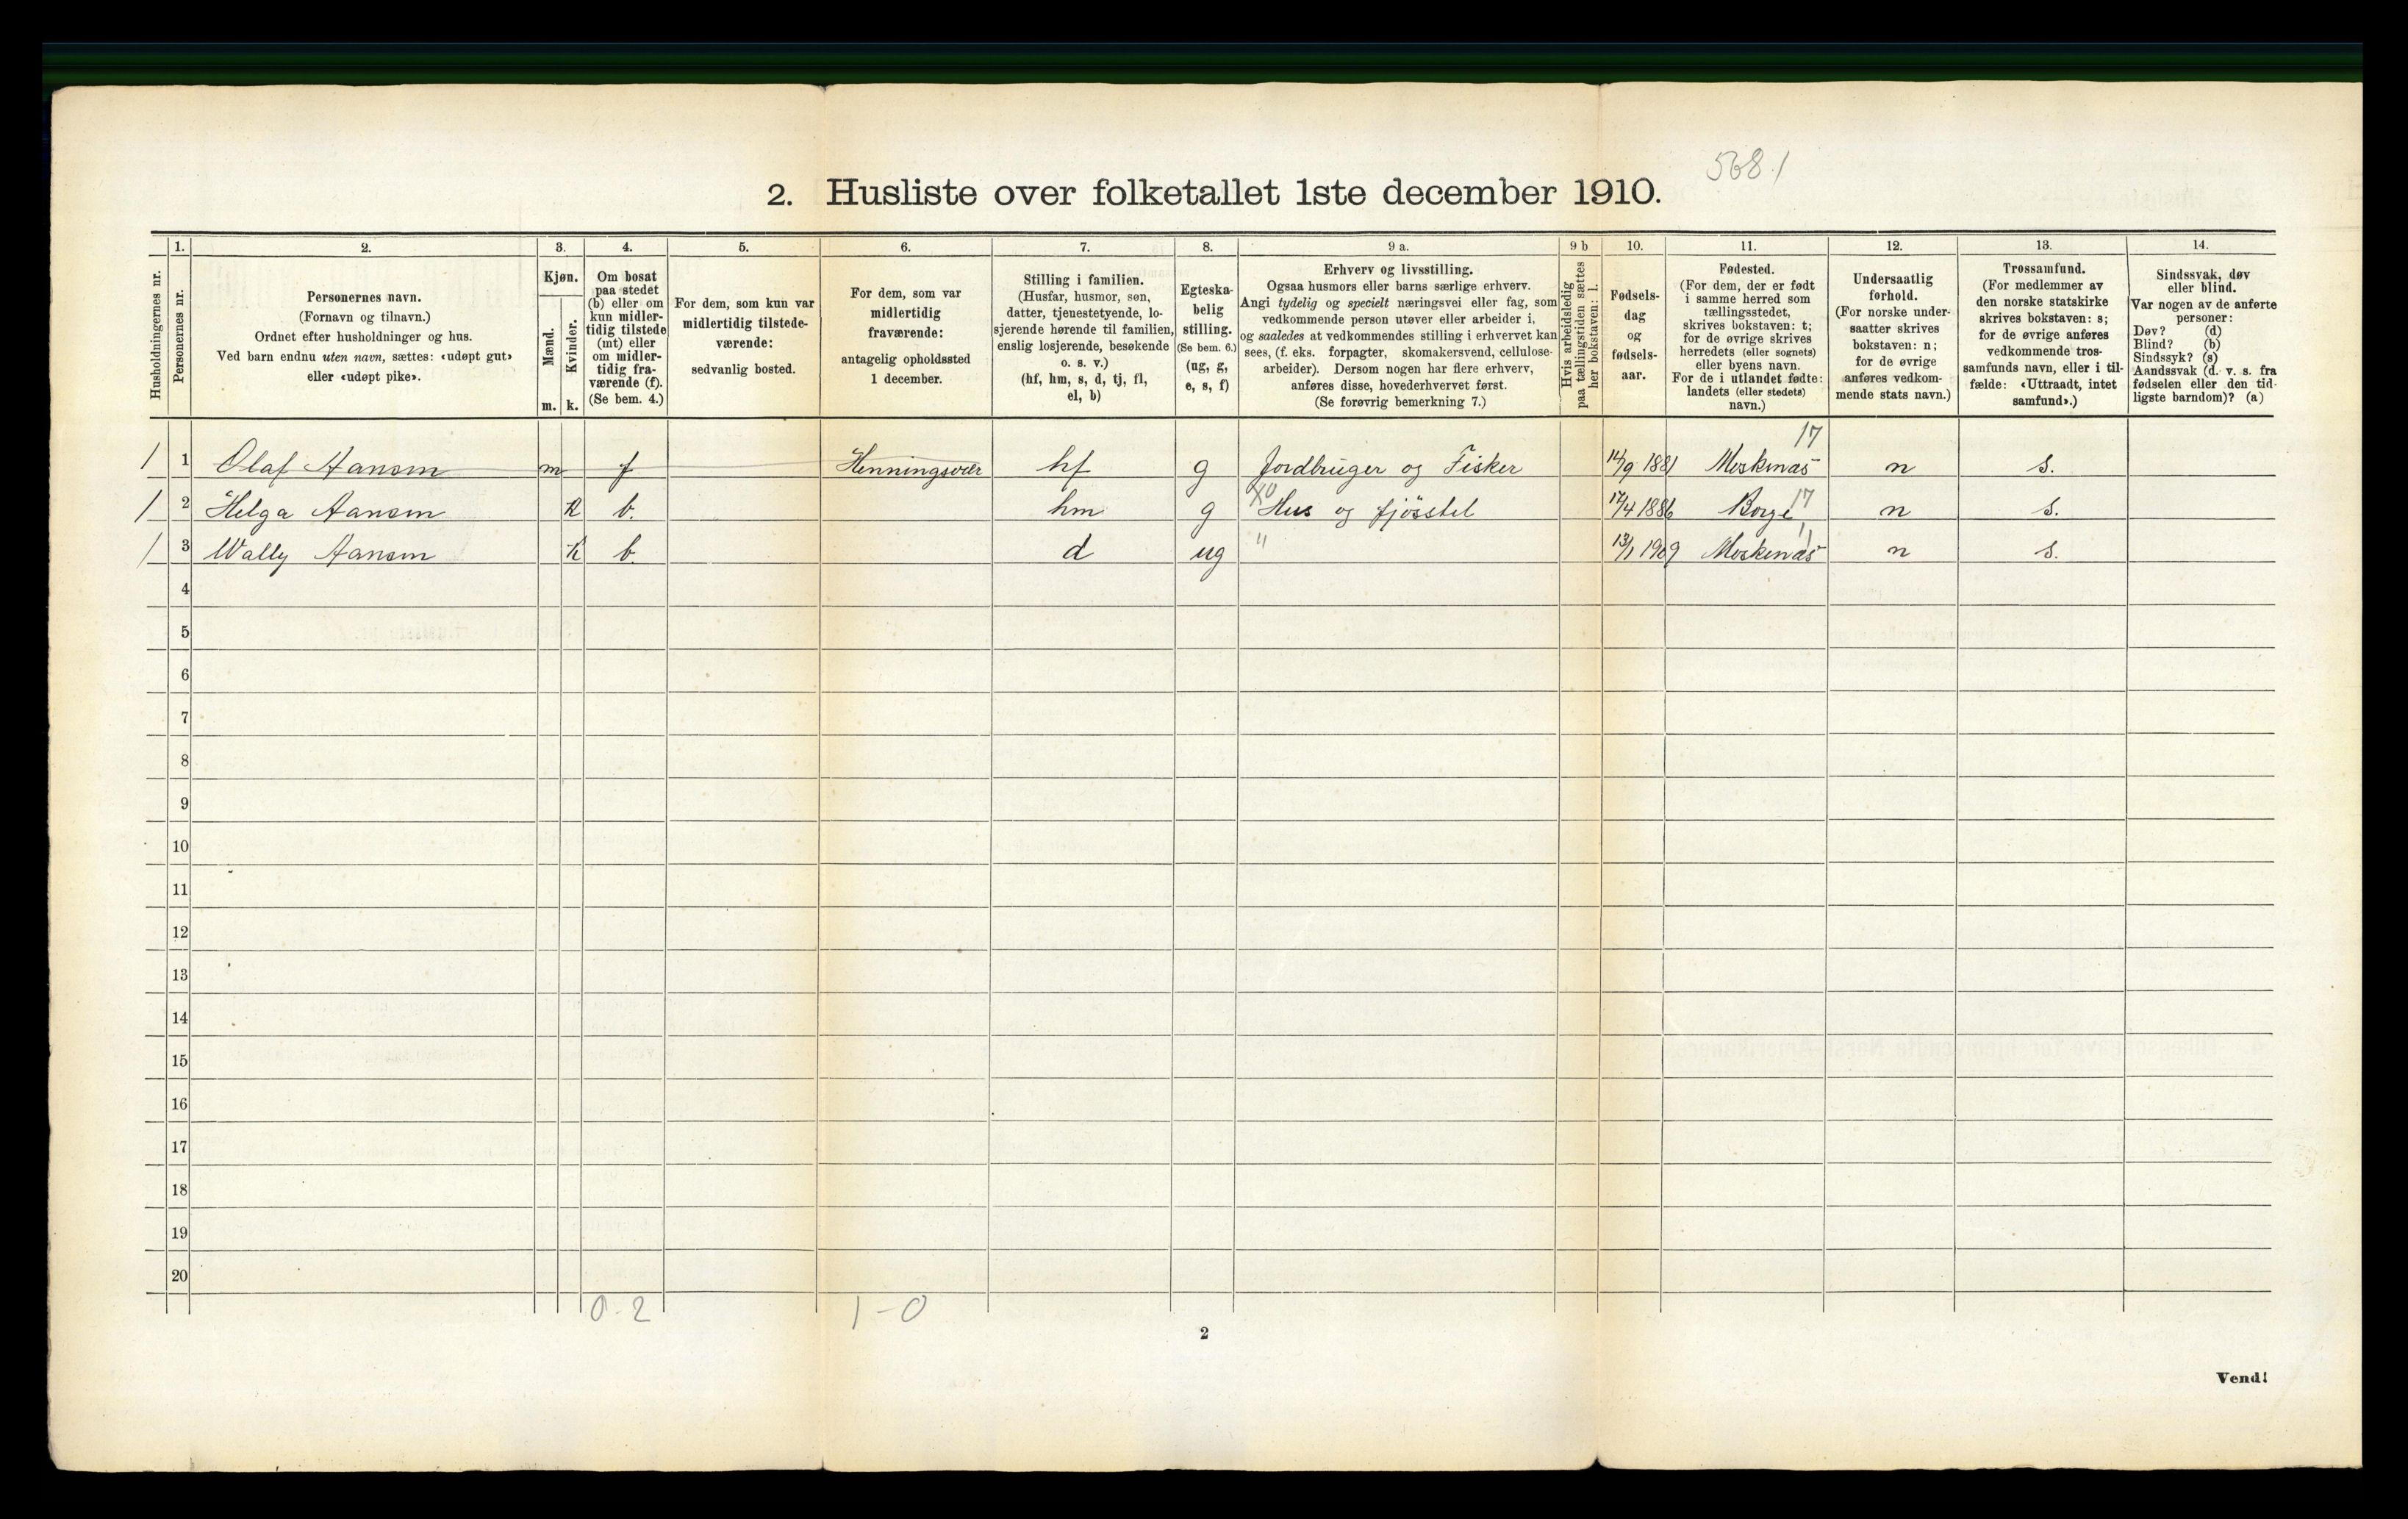 5681
2. Husliste over folketallet 1ste december 1910.
Husholdningernes nr.
1. Personernes nr.
2. Personernes navn. (Fornavn og tilnavn.) Ordnet efter husholdninger og hus. Ved barn endnu uten navn, sættes: «udøpt gut» eller «udøpt pike».
3. Kjøn. Mænd. m. Kvinder. k.
4. Om bosat paa stedet (b) eller om kun midlertidig tilstede (mt) eller om midlertidig fraværende (f). (Se bem. 4.)
5. For dem, som kun var midlertidig tilstedeværende: sedvanlig bosted.
6. For dem, som var midlertidig fraværende: antagelig opholdssted 1 december.
7. Stilling i familien. (Husfar, husmor, søn, datter, tjenestetyende, losjerende hørende til familien, enslig losjerende, besøkende o. s. v.) (hf, hm, s, d, tj, fl, el, b)
8. Egteskabelig stilling. (Se bem. 6.) (ug, g, e, s, f)
9 a. Erhverv og livsstilling. Ogsaa husmors eller barns særlige erhverv. Angi tydelig og specielt næringsvei eller fag, som vedkommende person utøver eller arbeider i, og saaledes at vedkommendes stilling i erhvervet kan sees, (f. eks. forpagter, skomakersvend, cellulosearbeider). Dersom nogen har flere erhverv, anføres disse, hovederhvervet først. (Se forøvrig bemerkning 7.)
9 b Hvis arbeidsledig paa tællingstiden sættes her bokstaven: l.
10. Fødselsdag og fødselsaar.
11. Fødested. (For dem, der er født i samme herred som tællingsstedet, skrives bokstaven: t; for de øvrige skrives herredets (eller sognets) eller byens navn. For de i utlandet fødte: landets (eller stedets) navn.)
12. Undersaatlig forhold. (For norske undersaatter skrives bokstaven: n; for de øvrige anføres vedkommende stats navn.)
13. Trossamfund. (For medlemmer av den norske statskirke skrives bokstaven: s; for de øvrige anføres vedkommende trossamfunds navn, eller i tilfælde: «Uttraadt, intet samfund».)
14. Sindssvak, døv eller blind. Var nogen av de anførte personer: Døv? (d) Blind? (b) Sindssyk? (s) Aandssvak (d. v. s. fra fødselen eller den tidligste barndom)? (a)
17
1 1 Olaf Hansen m f Henningsvær hf g Jordbruger og Fisker 14/9 1881 Moskenäs n s.
1 2 Helga Hansen k b. hm g Hus og fjösstel 17/4 1886 Borge 17 n s.
1 3 Wally Hansen k b. d ug " 13/1 1909 Moskenäs n s.
4
5
6
7
8
9
10
11
12
13
14
15
16
17
18
19
20
0-2 1-0
2
Vend!